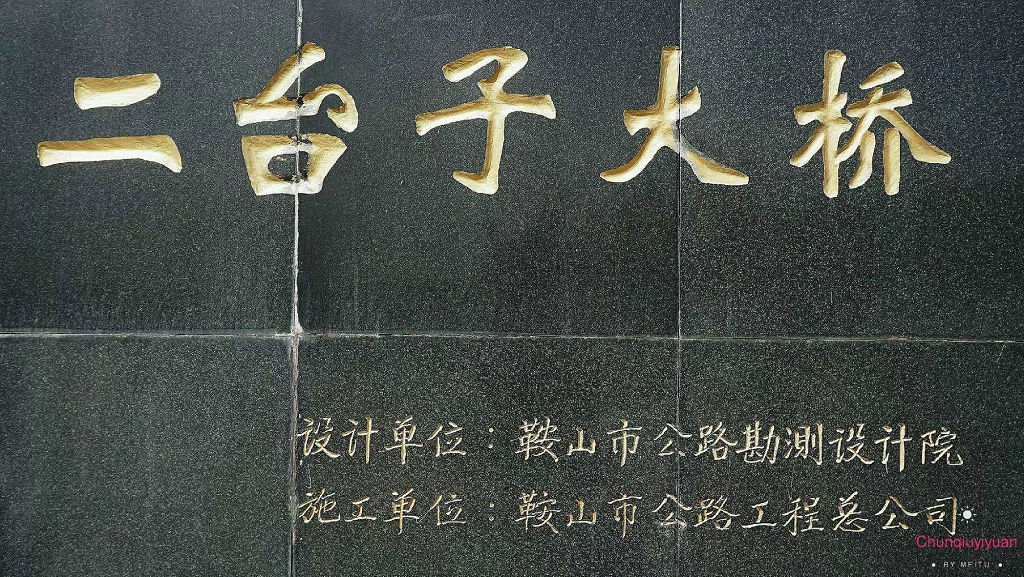 二台子大桥
设计单位：鞍山市公路勘测设计院
施工单位：鞍山市公路工程总公司
Chunqiuyiyuan
BY MEITU